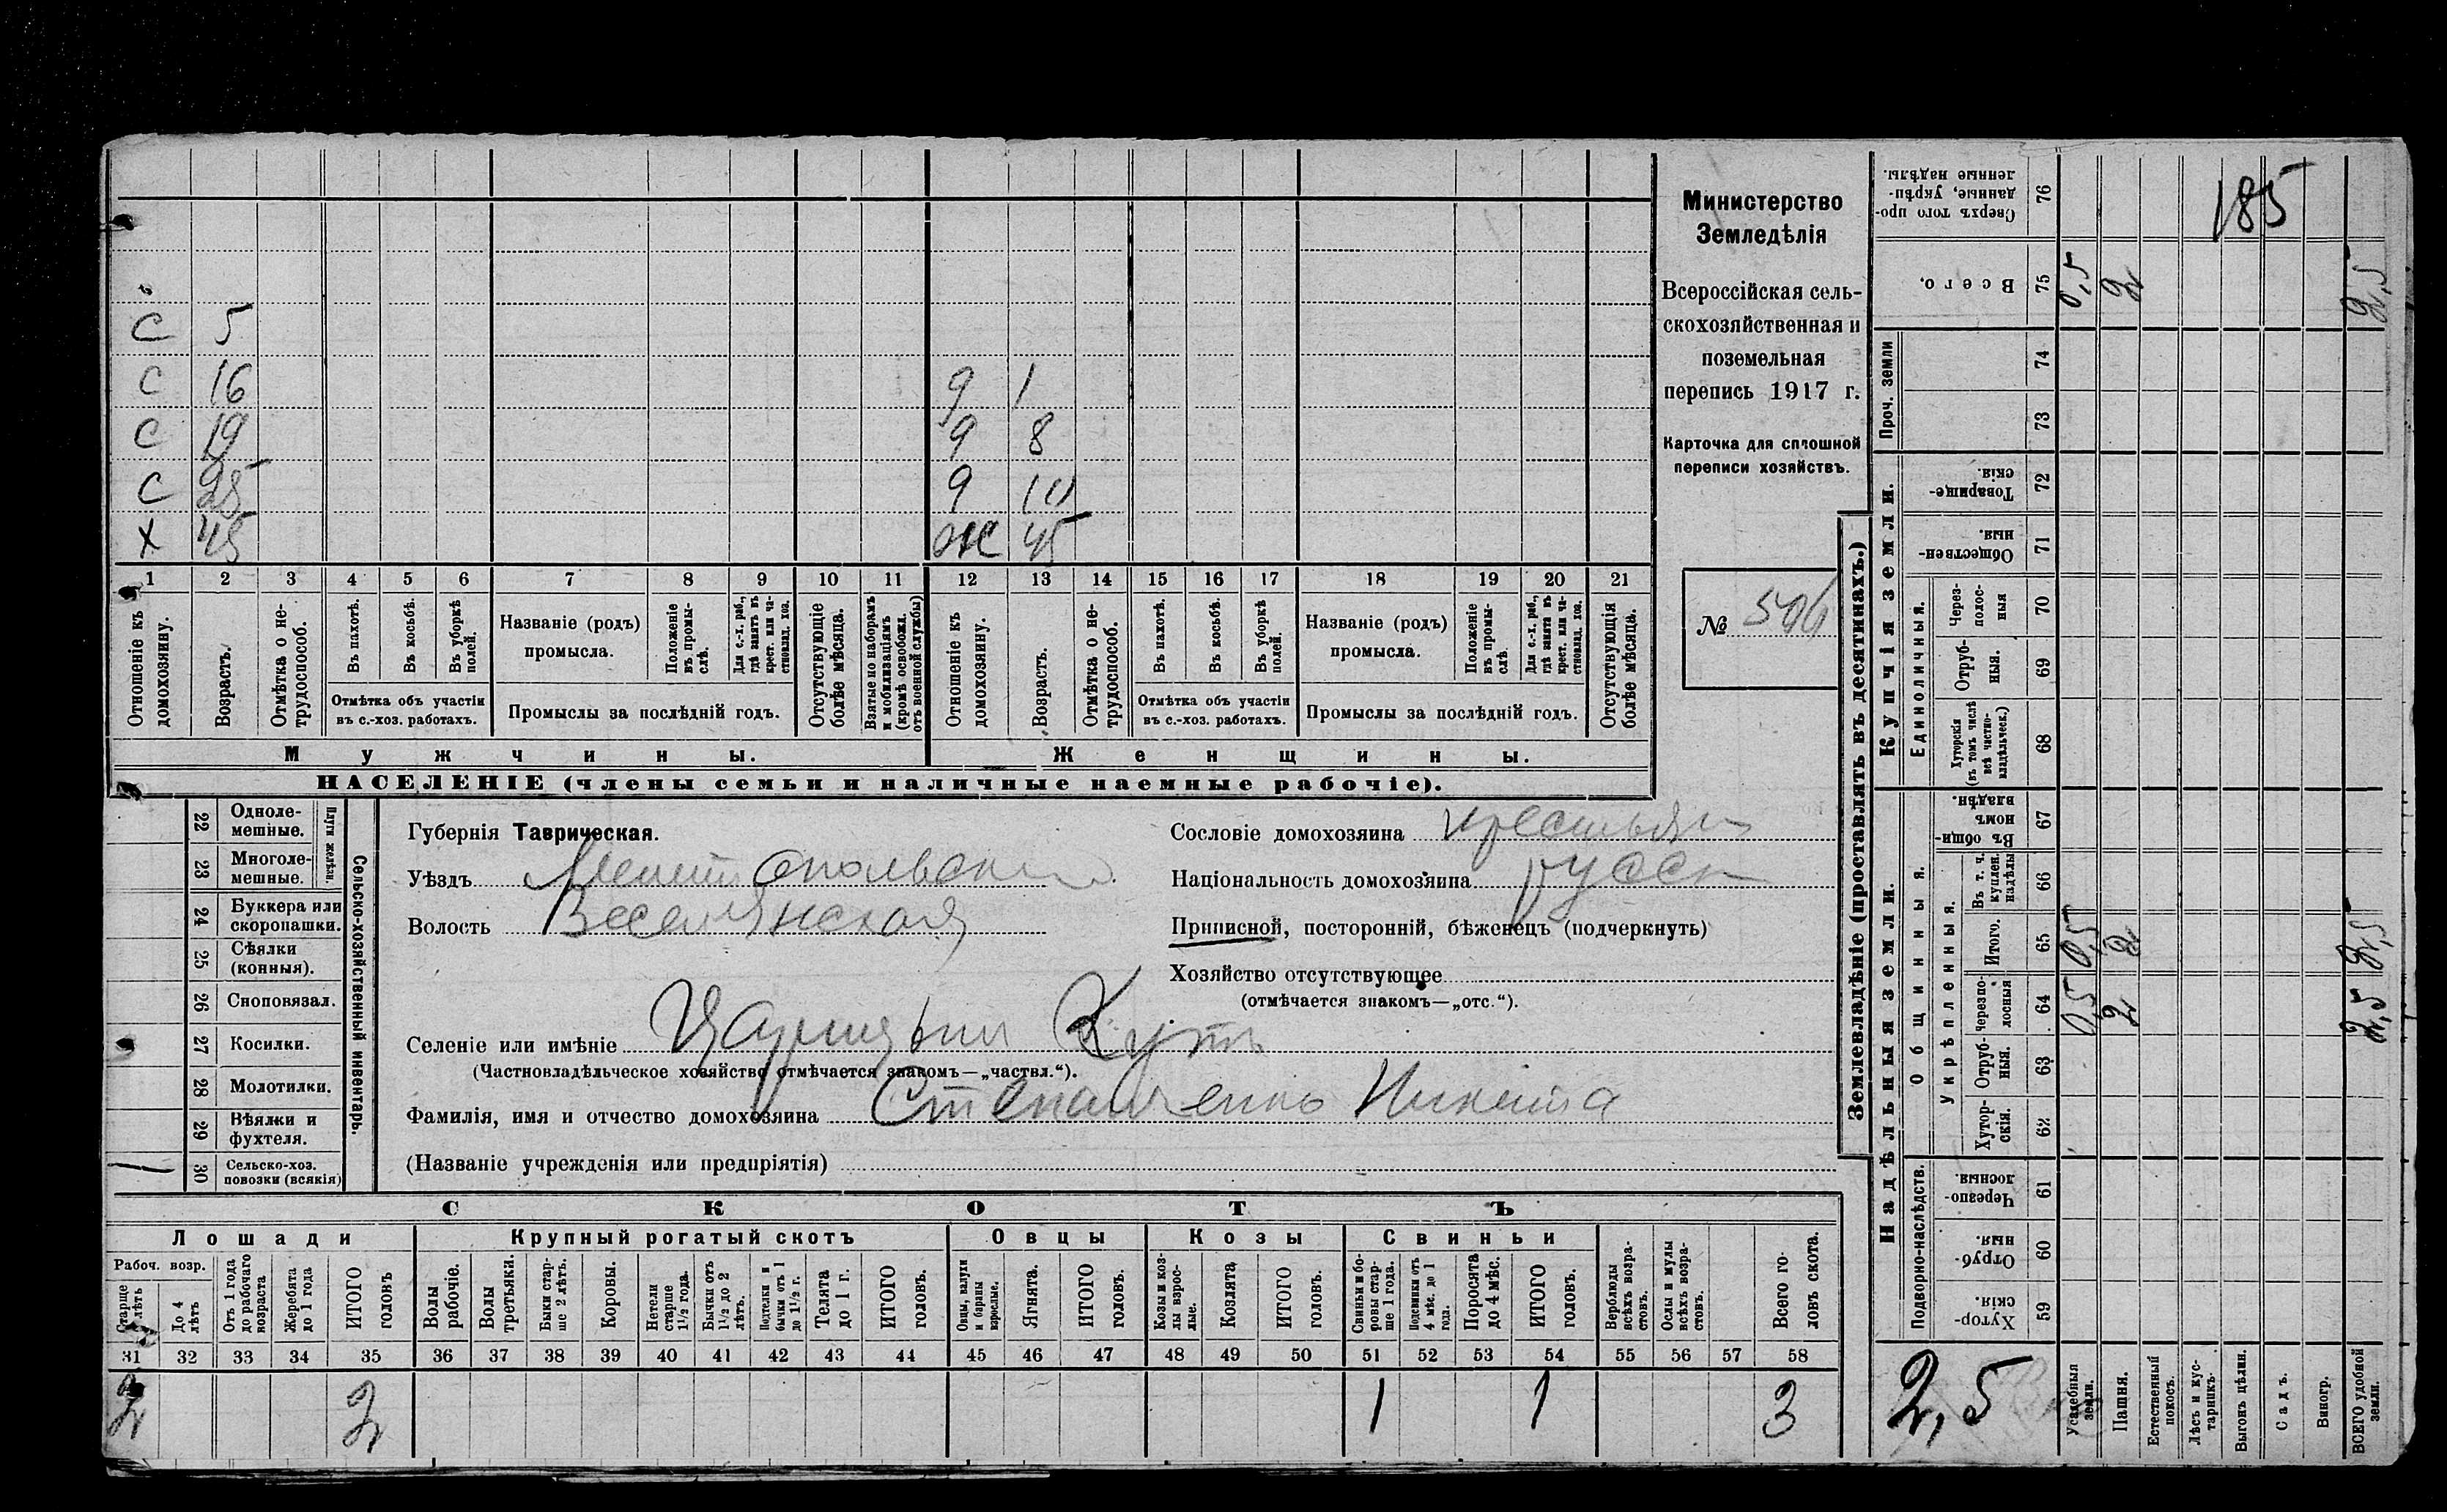 С 5
С 16
С 19
С 25
Х 45
9 1
9 8
9 10
Ж 45
1 2 3 4 5 6 7 8 9 10 11 12 13 14 15 16 17 18 19 20 21
Отношеніе къ домохозяину.
Возрастъ.
Отмѣтка о не-
трудоспособ.
Въ пахотѣ.
Въ косьбѣ.
Въ уборкѣ полей.
Отмѣтка объ участіи
въ с.-хоз. работахъ.
Названіе (родъ)
промысла.
Положеніе въ промы-
слѣ.
Для с.-х. раб., гдѣ занятъ въ крест. или ча-
стновлад. хоз.
Промыслы за послѣдній годъ.
Отсутствующіе болѣе мѣсяца.
Взятые по наборамъ и мобилизаціямъ (кромѣ освобожд. отъ военной службы)
Отношеніе къ домохозяину.
Возрастъ.
Отмѣтка о не-
трудоспособ.
Въ пахотѣ.
Въ косьбѣ.
Въ уборкѣ полей.
Отмѣтка объ участіи
въ с.-хоз. работахъ.
Названіе (родъ)
промысла.
Положеніе въ промы-
слѣ
Для с.-х. раб., гдѣ занята въ крест. или ча-
стновлад. хоз.
Промыслы за послѣдній годъ.
Отсутствующія болѣе мѣсяца.
Мужчины.
Женщины.
НАСЕЛЕНІЕ (члены семьи и наличные наемные рабочіе).
Министерство
Земледѣлія
Всероссійская сель-
скохозяйственная и
поземельная
перепись 1917 г.
Карточка для сплошной
переписи хозяйствъ.
№
22 Одноле-
мешные.
23 Многоле-
мешные.
Плуги желѣзн.
24 Буккера или
скоропашки.
25 Сѣялки
(конныя).
26 Сноповязал.
27 Косилки.
28 Молотилки.
29 Вѣялки и
фухтеля.
30 Сельско-хоз.
повозки (всякія)
Сельско-хозяйственный инвентарь.
Губернія Таврическая.
Уѣздъ Мелитопольскій
Волость Веселянская
Селеніе или имѣніе Царицынъ Кутъ
(Частновладѣльческое хозяйство отмѣчается знакомъ—„частвл.“).
Фамилія, имя и отчество домохозяина Степаненко Никита
(Названіе учрежденія или предпріятія)
Сословіе домохозяина крестьян
Національность домохозяина русск
Приписной, посторонній, бѣженецъ (подчеркнуть)
Хозяйство отсутствующее
(отмѣчается знакомъ—„отс.“).
СКОТЪ
Лошади
Крупный рогатый скотъ
Овцы
Козы
Свиньи
Рабоч. возр.
Старше 4 лѣтъ
До 4 лѣтъ
Отъ 1 года до рабочаго возраста
Жеребята до 1 года
ИТОГО головъ
Волы рабочіе.
Волы третьяки.
Быки стар-
ше 2 лѣтъ.
Коровы.
Нетели старше 1½ года.
Бычки отъ 1½ до 2 лѣтъ.
Подтелки и бычки отъ 1 до 1½ г.
Телята до 1 г.
ИТОГО головъ.
Овцы, валухи и бараны взрослые.
Ягнята.
ИТОГО головъ.
Козы и коз-
лы взрос-
лые.
Козлята
ИТОГО головъ.
Свиньи и бо-
ровы стар-
ше 1 года.
Подсвинки отъ 4 мѣс. до 1 года.
Поросята до 4 мѣс.
ИТОГО головъ.
Верблюды всѣхъ возра-
стовъ.
Ослы и мулы всѣхъ возра-
стовъ.
Всего го-
ловъ скота.
31 32 33 34 35 36 37 38 39 40 41 42 43 44 45 46 47 48 49 50 51 52 53 54 55 56 57 58
2 2 1 1 3
Землевладѣніе (проставлять въ десятинахъ.)
Купчія земли.
Проч. земли
Единоличныя.
Надѣльныя земли.
Общинныя.
Укрѣпленныя.
Подворно-наслѣдств.
Сверхъ того про-
данные, укрѣп-
ленные надѣлы. 76
185
Всего. 75 0,5 2 2,5
74
73
Товарище-
скія. 72
Обществен-
ныя. 71
Через-
полос-
ныя 70
Отруб-
ныя. 69
Хуторскія (въ томъ числѣ всѣ частно-
владѣльческ.) 68
Въ общи-
номъ
владѣн. 67
Въ т. ч. куплен. надѣлы 66
Итого. 65 0,5 2 2,5
Черезпо-
лосныя 64 0,5 2 2,5
Отруб-
ныя. 63
Хутор-
скія. 62
Черезпо-
лосныя. 61
Отруб-
ныя. 60
Хутор-
скія. 59
2,5
Усадебныя земли.
Пашня.
Естественный покосъ.
Лѣсъ и кус-
тарникъ.
Выгонъ цѣлин.
Садъ.
Виногр.
ВСЕГО удобной земли.